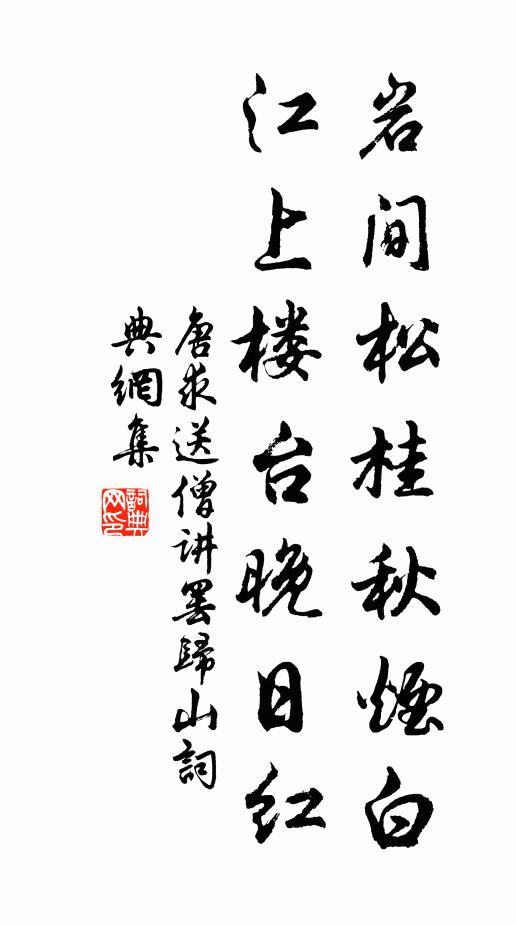 岩间松桂秋煙白
江上楼台晚日红
唐求送僧讲罢歸山詞
典網集
詞典網印